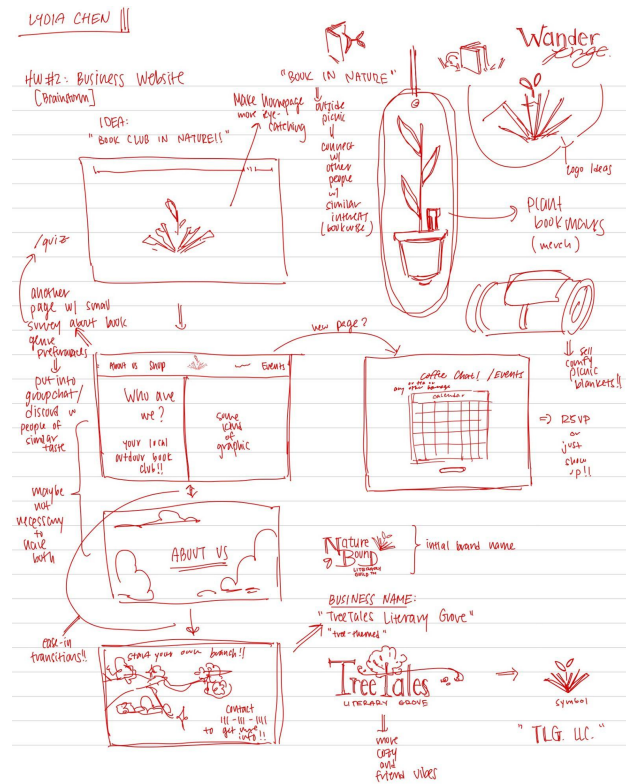 LYDIA CHEN
HW #2: Business Website
[Brainstorm]
IDEA:
"BOOK CLUB IN NATURE!!"
Make homepage
more eye-
catching
"BOOK IN NATURE"
outside
picnic
connect
w/
other
people
w/
similar
interests
(bookwise)
Wander
Logo Ideas
plant
bookmarks
(merch)
sell
comfy
picnic
blankets!!
/quiz
another
page w/ small
survey about book
genre
preferences
put into
groupchat/
discuss w
people of
similar
taste
maybe
not
necessary
to
have
both
new page?
About us Shop
Events
Who are
we?
your local
outdoor book
club!!
some
kind
of
graphic
Coffee Chat! /Events
or tea or
any other beverage
calendar
=> RSVP
or
just
show
up!!
ABOUT US
Nature
& Bound
LITERARY
GUILD™
initial brand name
BUSINESS NAME:
"TreeTales Literary Grove"
"tree-themed"
ease-in
transitions!!
start your own branch!!
contact
111-111-1111
to get more
info!!
TreeTales
LITERARY GROVE
symbol
"TLG. LLC."
more
cozy
and
friend vibes